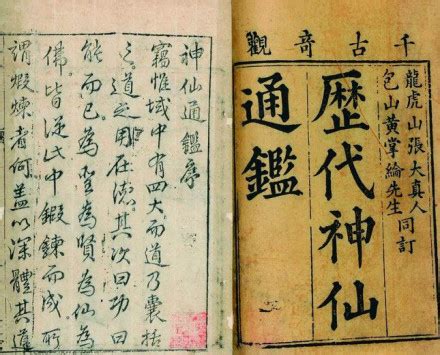 千古奇觀
龍虎山張大真人
包山黃掌綸先生
同訂
歴代神仙
通鑑
神仙通鑑序
竊惟域中有四大而道乃囊括
之道之用在德其次曰功曰
能而已為聖為賢為仙為
佛皆從此中鍛鍊而成所
謂煅煉者何蓋以深體其道